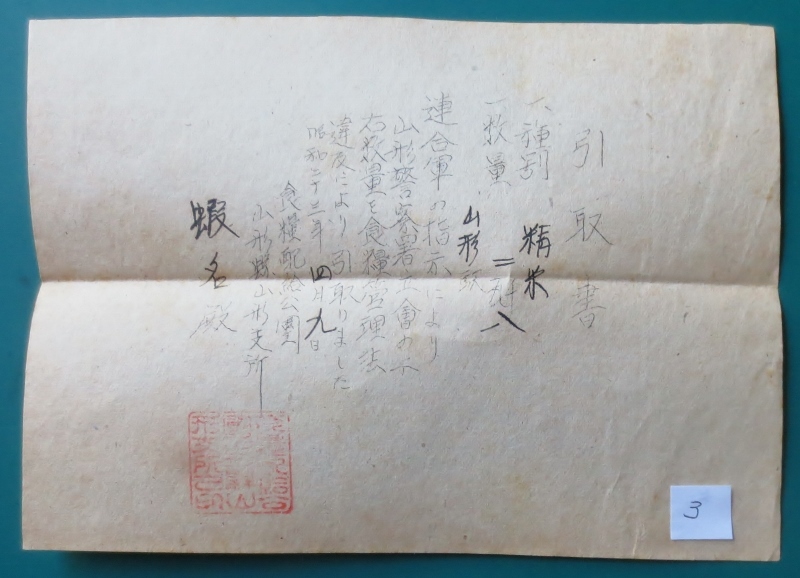 引取書
一、種別、精米
一、数量、二
八
山形駅
連合軍の指示により
山形警察署立會の下
右数量を食糧管理法
違反により引取りました
昭和二十三年四月九日
食糧配給公團
山形縣山形支所
蝦名殿
3